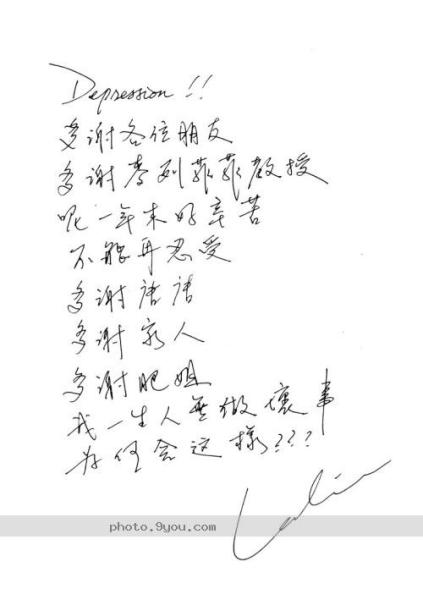 Depression !!
多谢各位朋友
多谢麥列菲菲教授
呢一年来好辛苦
不能再忍受
多谢唐唐
多谢家人
多谢肥姐
我一生人無做壞事
为何会这樣???
Leslie
photo.9you.com